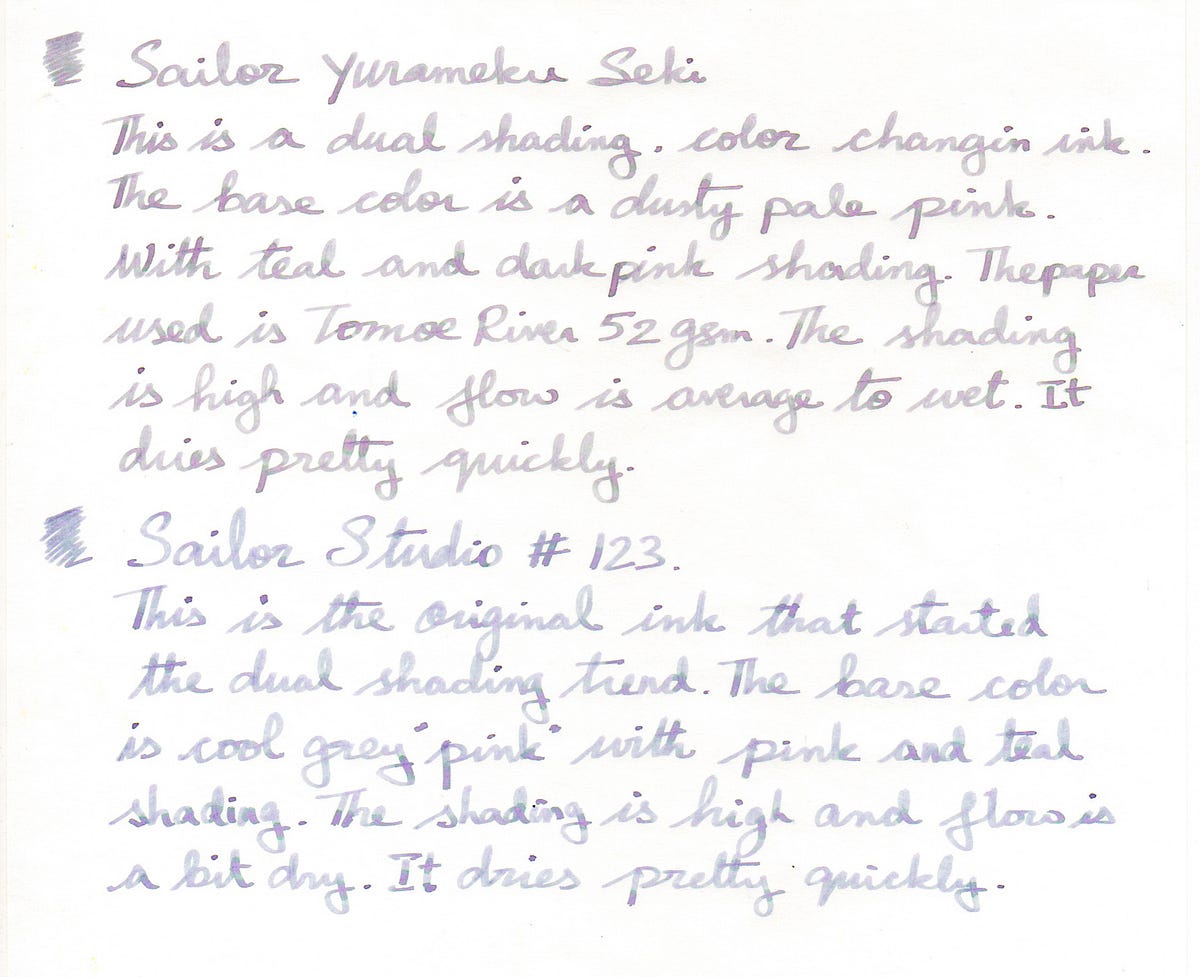 Sailor Yurameku Seki
This is a dual shading. color changin ink.
The base color is a dusty pale pink.
With teal and dark pink shading. The paper
used is Tomoe River 52 gsm. The shading
is high and flow is average to wet. It
dries pretty quickly.
Sailor Studio # 123.
This is the original ink that started
the dual shading trend. The base color
is cool grey "pink" with pink and teal
shading. The shading is high and flow is
a bit dry. It dries pretty quickly.